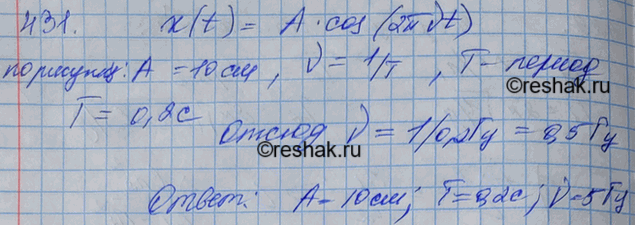 431. x(t) = A·cos(2πνt)
по рисунку: A = 10 см, ν = 1/T, T - период
©reshak.ru
T = 0,2 с
Отсюд ν = 1/0,2 Гц = 0,5 Гц
©reshak.ru
Ответ: A = 10 см; T = 0,2 с; ν = 5 Гц